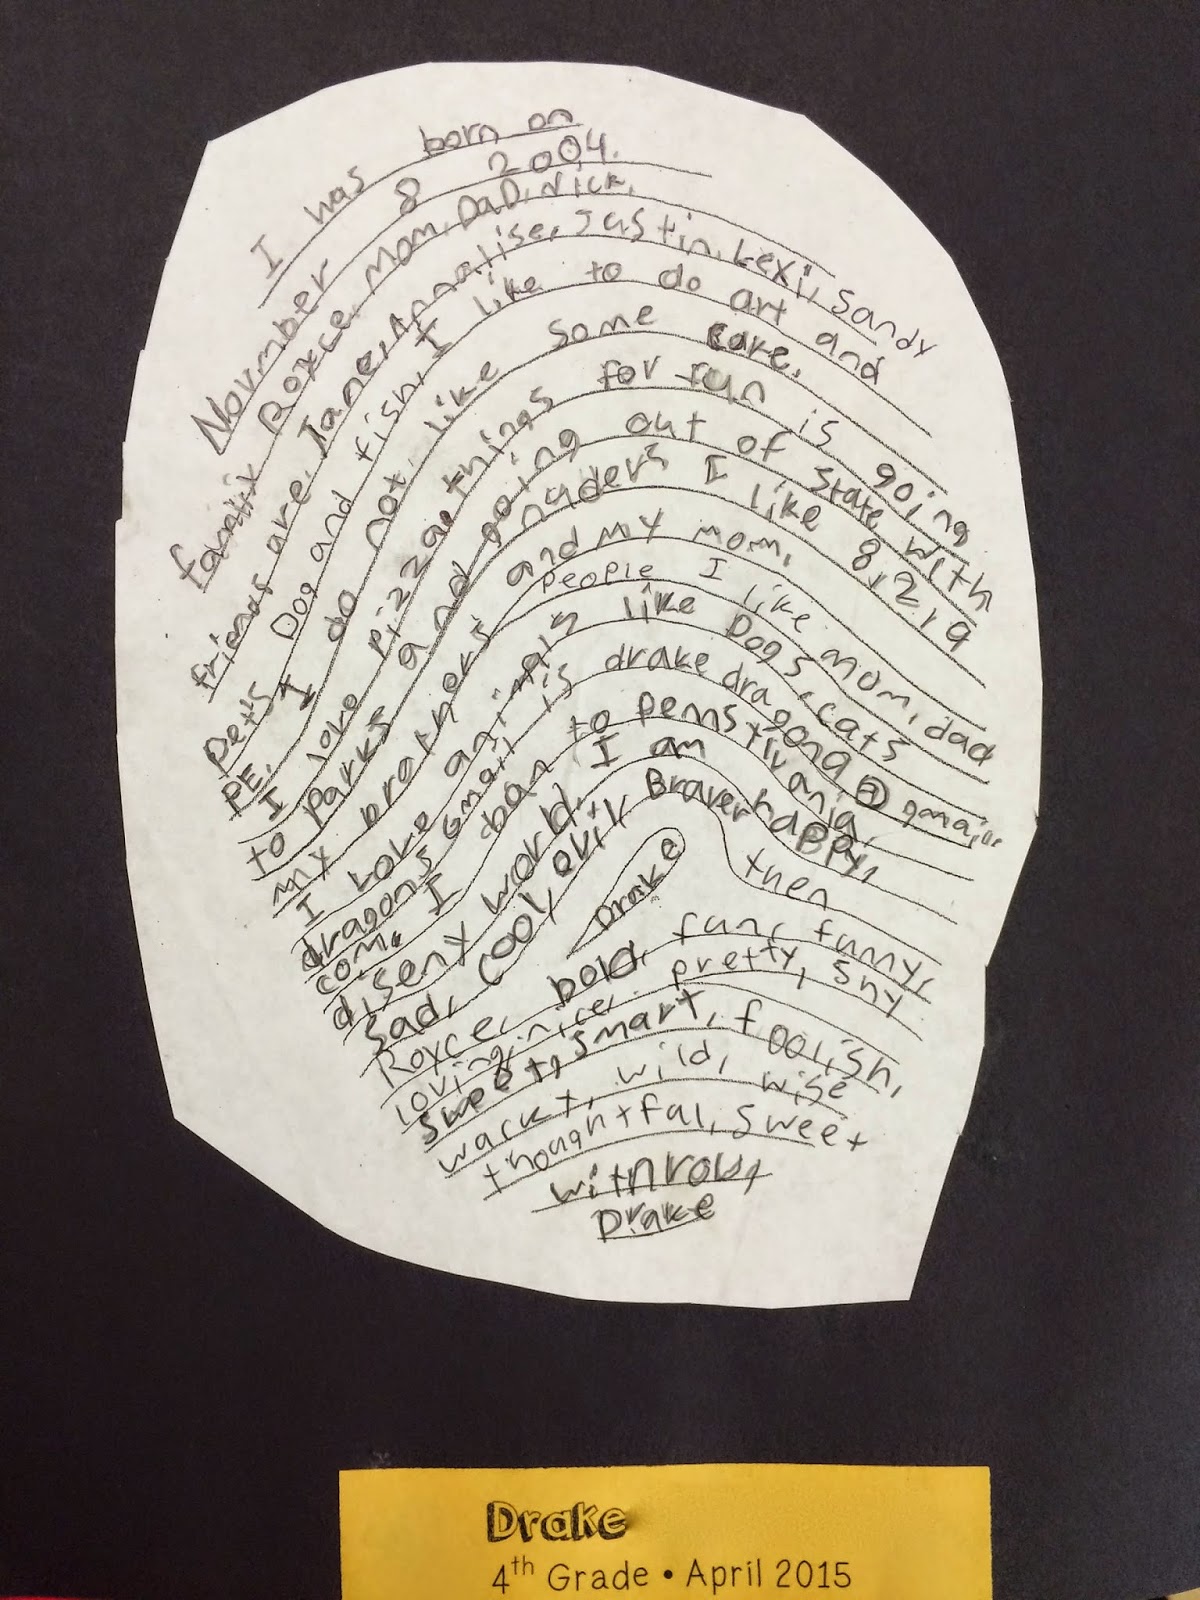 I was born on
Novmber 8 2004.
family Royce, mom, DaD, Nick.
friends are, Jane, Annalise, Justin, Lexi, Sandy
pets Dog and fish, I like to do art and
PE. I do not like some
I love pizza things for fun is going
to parks and going out of state with
my brothers I like 8,2,19
I love and my mom.
people I like mom, dad
animals like Dogs, cats
dragons gmail is drake dragona@gmail.
com. I to penstivania
diseny world. I am happy,
sad, cool, evil, Braver then
Drake
Royce, bold, fun, funny,
loving, nice, pretty, shy
sweet, smart, foolish,
wild, wise
thoughtfal, sweet
withrow,
Drake
Drake
4th Grade • April 2015